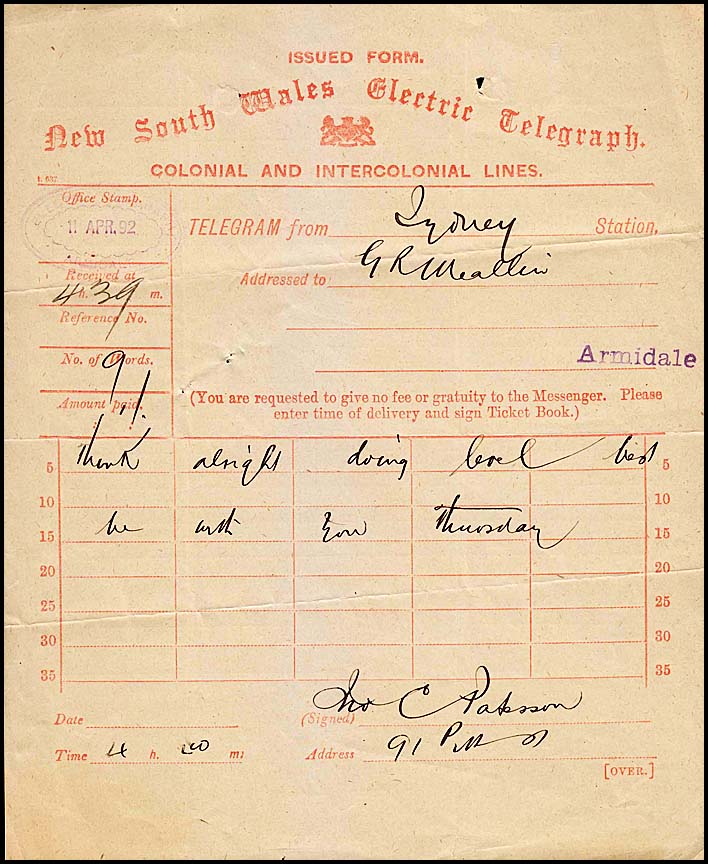 ISSUED FORM.
New South Wales Electric Telegraph.
COLONIAL AND INTERCOLONIAL LINES.
Office Stamp.
11 APR. 92
TELEGRAM from Sydney Station,
Received at
4 h. 39 m.
Addressed to G R
Reference No.
No. of Words.
9
Armidale
Amount paid.
1/
(You are requested to give no fee or gratuity to the Messenger. Please
enter time of delivery and sign Ticket Book.)
5 Think alright doing level best 5
10 10
15 be with you Thursday 15
20 20
25 25
30 30
35 35
(Signed) Jno C Paterson
Date
Time 4 h. 20 m: Address 91 Pitt St
[OVER.]